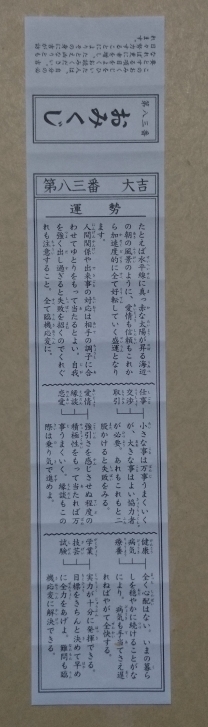 第八三番
おみくじ
第八三番 大吉
運勢
たとえば水平線にまっ赤な太陽が昇る海辺
の朝の風景のように、愛情も信頼もこれか
ら加速度的に全て好転していく盛運となり
ます。
人間関係や出来事の対応は相手の調子に合
わせてゆとりをもって当たるとよい。自我
を強く出し過ぎると失敗を招くのでくれぐ
れも注意すること。全て臨機応変に。
仕事
交渉
取引
小さな事は万事うまくいく
が、大きな事はよい協力者
が必要。あれもこれもと二
股かけると失敗をみる。
愛情
縁談
恋愛
強引さを感じさせぬ程度の
積極性をもって当たれば万
事うまくいく。縁談もこの
際は乗り気で進めよ。
健康
病気
療養
全く心配はない。いまの暮ら
しを穏やかに続けることがな
により。病気も手当てさえ遅
れねばやがて全快する。
学業
技芸
試験
実力が十分に発揮できる。
目標をきちんと決めて早め
に全力をあげよ。難問も臨
機応変に解決できる。